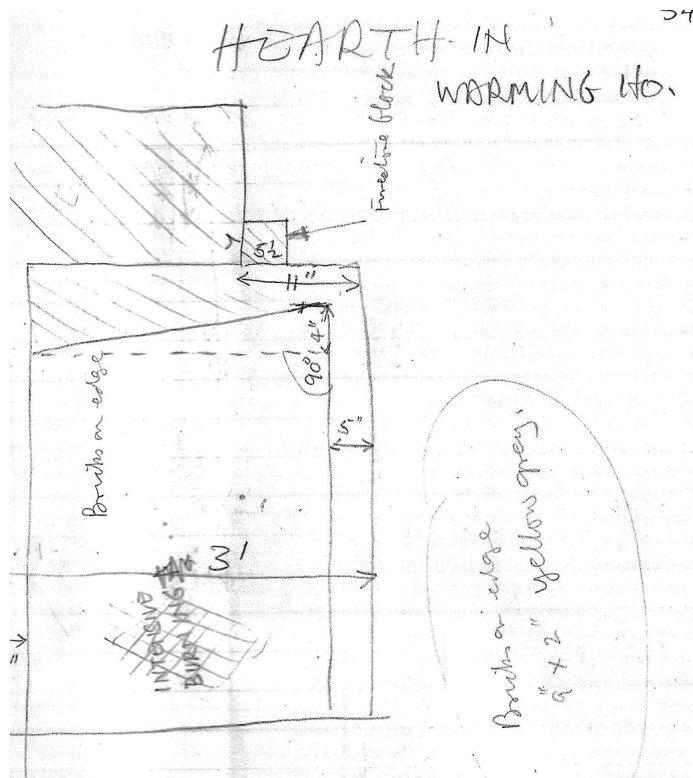 HEARTH IN
WARMING HO.
Firestone block
5½
11"
4"
90°
5"
Bricks on edge
3'
INTENSIVE
BURNING
Bricks on edge
9" x 2" yellow grey.